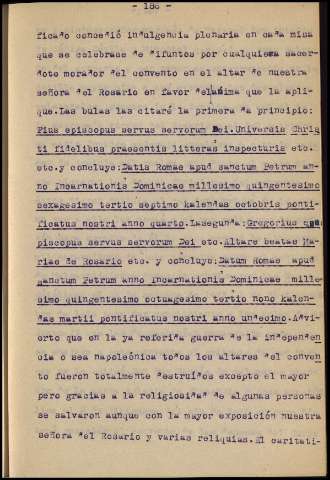 - 186 -
ficado concedió indulgencia plenaria en cada misa
que se celebrase de difuntos por cualquiera sacer-
dote morador del convento en el altar de nuestra
señora del Rosario en favor del anima que la apli-
que. Las bulas las citaré la primera da principio:
Pius episcopus servus servorum Dei. Universis Chris
ti fidelibus praesentis litteras inspecturis etc.
etc. y concluye: Datis Romae apud sanctum Petrum an-
no Incarnationis Dominicae millesimo quingentesimo
sexagesimo tertio septimo kalendas octobris ponti-
ficatus nostri anno quarto. La segunda: Gregorius que
piscopus servus servorum Dei etc. Altare beatae Ma-
riae de Rosario etc. y concluye: Datum Romae apud
sanctum Petrum anno Incarnationis Dominicae mille-
simo quingentesimo octuagesimo tertio nono kalen-
das martii pontificatus nostri anno undecimo. Advi-
erto que en la ya referida guerra de la independen
cia o sea napoleónica todos los altares del conven
to fueron totalmente destruidos excepto el mayor
pero gracias a la religiosidad de algunas personas
se salvaron aunque con la mayor exposición nuestra
señora del Rosario y varias reliquias. El caritati-